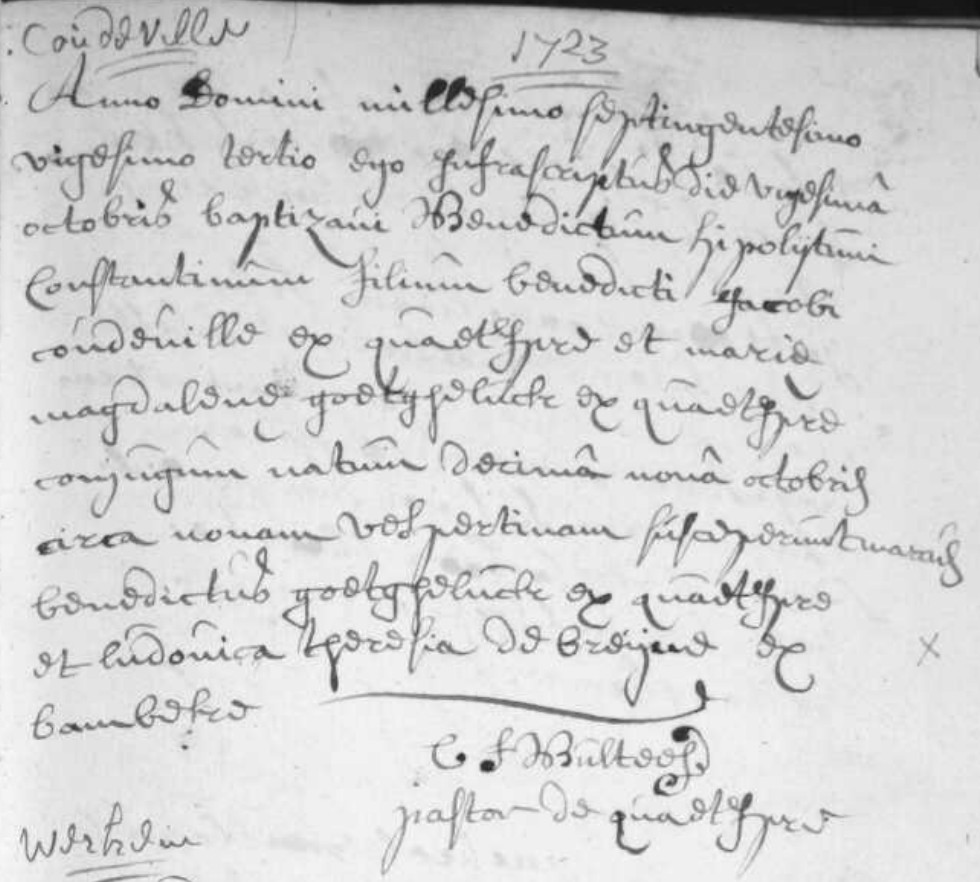 Coudeville
1723
Anno Domini millesimo septingentesimo
vigesimo tertio ego infrascriptus die vigesimâ
octobris baptizavi Benedictum hipolytum
Constantinum filium benedicti Jacobi
coudeville ex quaethypre et mariæ
magdalenæ goetghelucke ex quaethypre
conjugum natum decimâ nonâ octobris
circa nonam vespertinam susceperunt
benedictus goetghelucke ex quaethypre
et ludovica theresia de breyne ex
bambeke
pastor de quaethypre